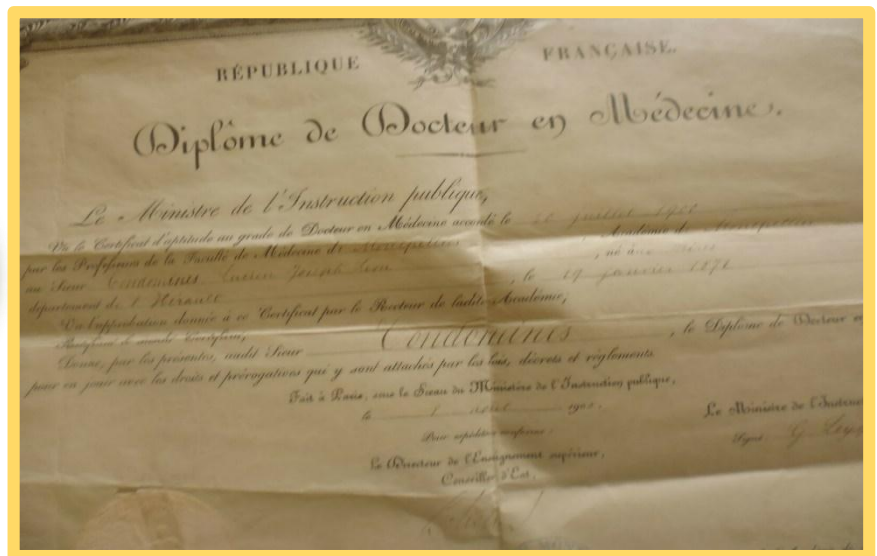 RÉPUBLIQUE FRANÇAISE.
Diplôme de Docteur en Médecine.
Le Ministre de l'Instruction publique,
Vu le Certificat d'aptitude au grade de Docteur en Médecine accordé le juillet
par les Professeurs de la Faculté de Médecine de Montpellier, Académie de Montpellier
au Sieur Condomines Lucien Joseph, né à
département de l'Hérault, le 19 janvier
Vu l'approbation donnée à ce Certificat par le Recteur de ladite Académie;
Donne, par les présentes, audit Sieur Condomines, le Diplôme de Docteur en
pour en jouir avec les droits et prérogatives qui y sont attachés par les lois, décrets et règlements.
Fait à Paris, sous le Sceau du Ministère de l'Instruction publique,
le
Pour expédition conforme:
Le Ministre de l'Instruc
Le Directeur de l'Enseignement supérieur,
Signé: G.
Conseiller d'État,